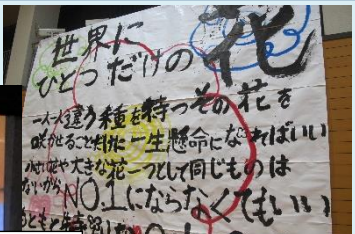 世界に
ひとつだけの花
一人一人違う種を持つその花を
咲かせることだけに一生懸命になればいい
小さい花や大きな花一つとして同じものは
ないから NO.1にならなくてもいい
もともと特別な